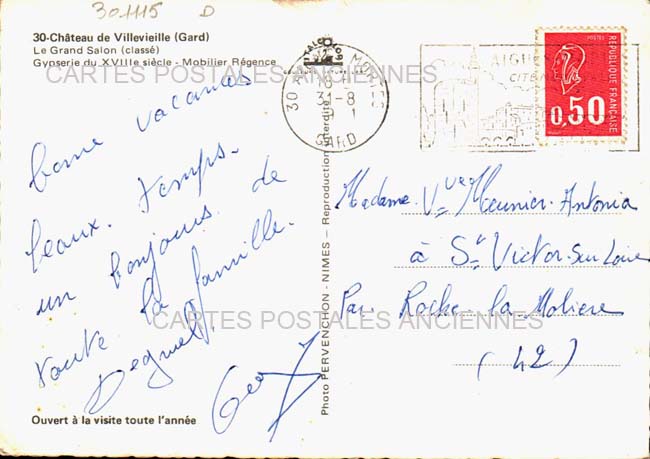 301115 D
30-Château de Villevieille (Gard)
Le Grand Salon (classé)
Gypserie du XVIIIe siècle - Mobilier Régence
CARTES POSTALES ANCIENNES
bonne vacances
beaux. temps.
un bonjours de
toute la famille.
Ouvert à la visite toute l'année
Photo PERVENCHON - NIMES - Reproduction interdite
30
MORTES
18
31-8
GARD
AIGU
CITÉ
POSTES
REPUBLIQUE FRANÇAISE
0,50
Madame. Vve Meunier. Antonia
à St Victor-Sur Loire
Par Roche la Molière
(42)
CARTES POSTALES ANCIENNES